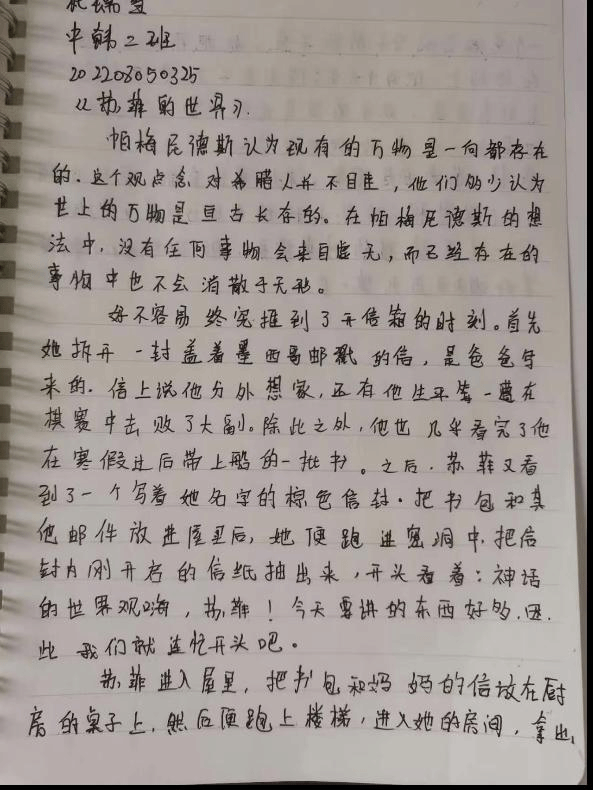 中韩二班
202208050325
《苏菲的世界》.
帕梅尼德斯认为现有的万物是一向都存在
的.这个观点念对希腊人并不目生,他们多少认为
世上的万物是亘古长存的。在帕梅尼德斯的想
法中,没有任何事物会来自虚无,而已经存在的
事物中也不会消散于无形。
好不容易终究推到了开信箱的时刻。首先
她拆开一封盖着墨西哥邮戳的信,是爸爸寄
来的.信上说他分外想家,还有他生平第一遭在
棋赛中击败了大副。除此之外,他也几乎看完了他
在寒假过后带上船的一批书。之后.苏菲又看
到了一个写着她名字的棕色信封.把书包和其
他邮件放进屋里后,她便跑进密洞中.把信
封内刚开启的信纸抽出来,开头看着:神话
的世界观嗨,苏菲!今天要讲的东西好多.因.
此我们就连忙开头吧。
苏菲进入屋里,把书包和妈妈的信放在厨
房的桌子上.然后便跑上楼梯,进入她的房间,拿出